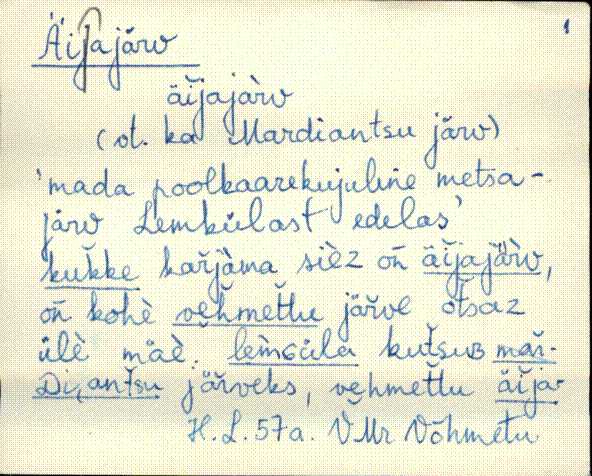 1
Äijajärv
äi̬jajàrv
(ot. ka Mardiantsu järv)
'mada poolkaarekujuline metsa-
järv Lemkülast edelas'
kuk̆ke kar̆jàma sièz on̆ äi̬jajär̀v,
on̆ kohè veh̆met̆tu jär̆ve ot̆saz
ülè mäè. lem̀Güla kut̆suʙ mar̆-
Di,ant̆su jär̆veks, vehmet̆tu äi̬ja-
H.L. 57a. VMr Võhmetu